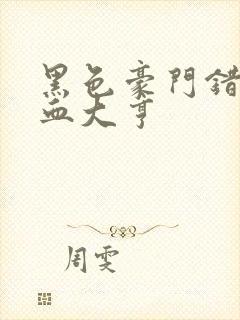 黑色豪門錯
血大亨
周雯